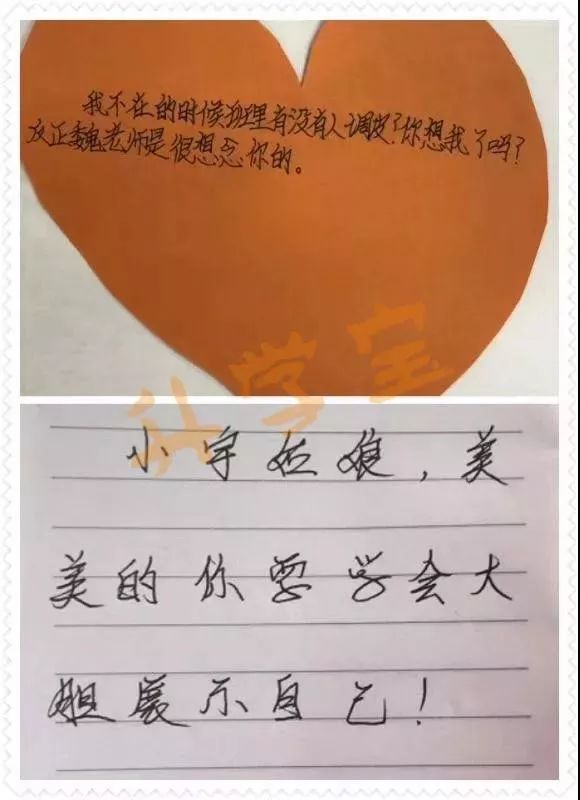 我不在的时候班里有没有人调皮？你想我了吗？
反正魏老师是很想念你的。
升学宝
小宇姑娘，美
美的你要学会大
胆展示自己！